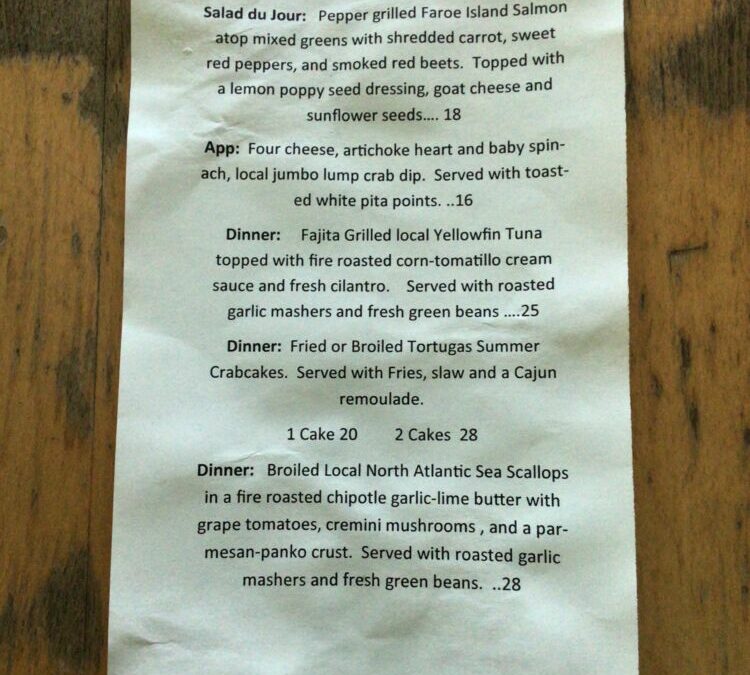 Salad du Jour: Pepper grilled Faroe Island Salmon
atop mixed greens with shredded carrot, sweet
red peppers, and smoked red beets. Topped with
a lemon poppy seed dressing, goat cheese and
sunflower seeds.... 18
App: Four cheese, artichoke heart and baby spin-
ach, local jumbo lump crab dip. Served with toast-
ed white pita points. ..16
Dinner: Fajita Grilled local Yellowfin Tuna
topped with fire roasted corn-tomatillo cream
sauce and fresh cilantro. Served with roasted
garlic mashers and fresh green beans ....25
Dinner: Fried or Broiled Tortugas Summer
Crabcakes. Served with Fries, slaw and a Cajun
remoulade.
1 Cake 20 2 Cakes 28
Dinner: Broiled Local North Atlantic Sea Scallops
in a fire roasted chipotle garlic-lime butter with
grape tomatoes, cremini mushrooms , and a par-
mesan-panko crust. Served with roasted garlic
mashers and fresh green beans. ..28